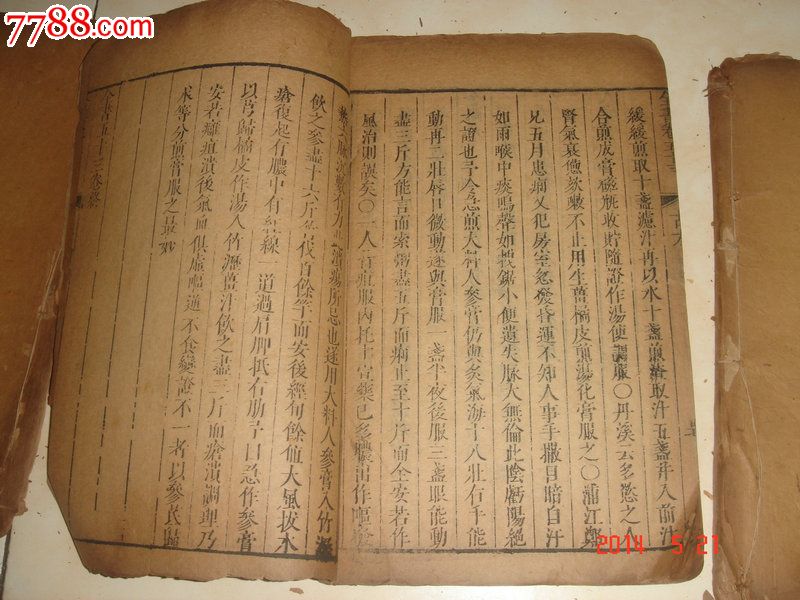 7788.com
中国收藏热线
緩緩煎取十盞濾汁再以水十盞煎渣取汁五盞并入前汁
合煎成膏磁瓶收貯隨證作湯使調服〇丹溪云多慾之人
腎氣衰憊欬嗽不止用生薑橘皮煎湯化膏服之〇浦江鄭
兄五月患痢又犯房室忽發昏運不知人事手撒目暗自汗
如雨喉中痰鳴聲如拽鋸小便遺失脉大無倫此陰虧陽絕
之證也予令急煎大料人參膏仍與灸氣海十八壯右手能
動再三壯唇口微動遂與膏服一盞半夜後服三盞眼能動
盡三斤方能言而索粥盡五斤而痢止至十斤而全安若作
風治則誤矣〇一人背疽服內托十宣藥已多膿出作嘔發
熱六脉沉數有力此潰瘍所忌也遂用大料人參膏入竹瀝
飲之參盡十六斤竹伐百餘竿而安後經旬餘值大風拔木
瘡復起有膿中有紅線一道過肩胛抵右肋予曰急作參膏
以芎歸橘皮作湯入竹瀝薑汁飲之盡三斤而瘡潰調理乃
安若癰疽潰後氣血俱虛嘔逆不食變證不一者以參芪歸
朮等分煎膏服之最妙
全書五十三卷終
2014 5 21